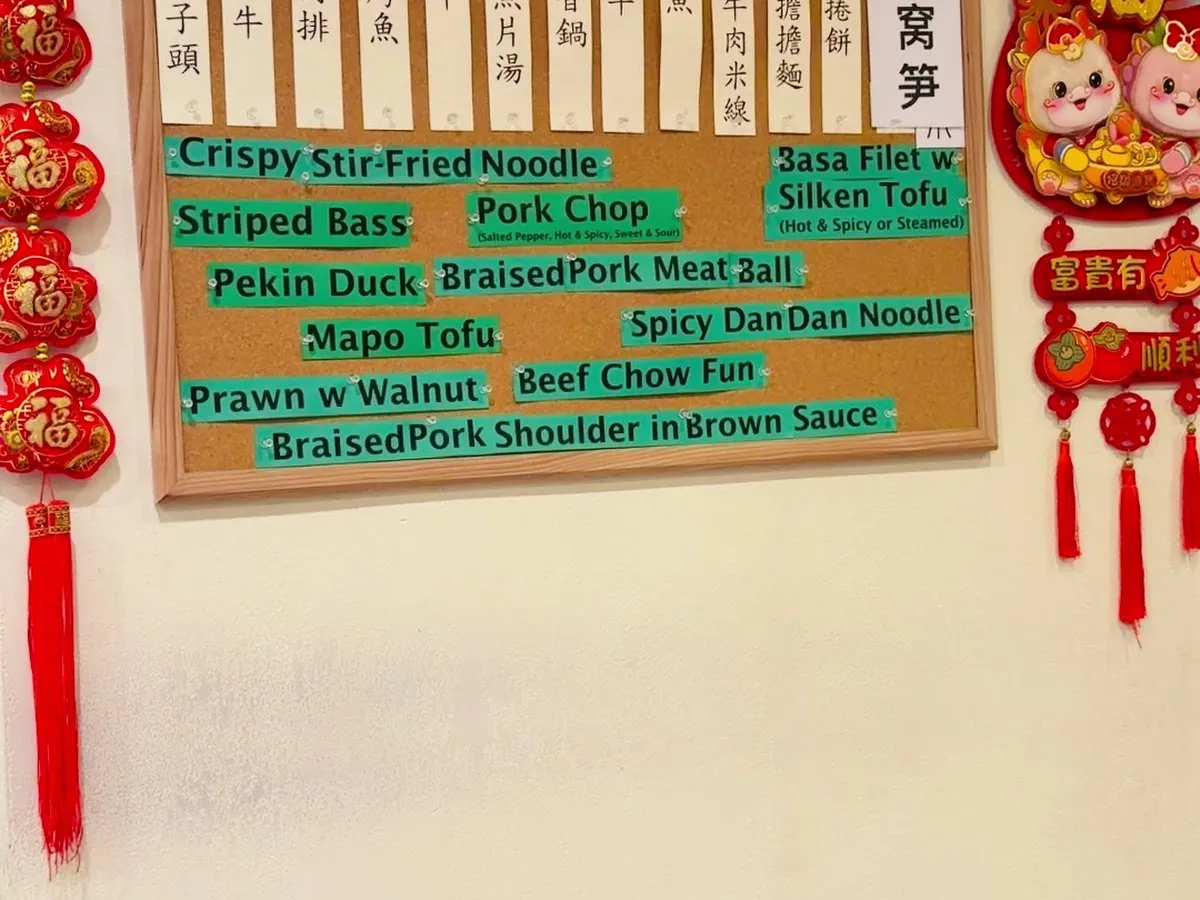 子頭
牛
排
魚
片湯
鍋
魚
牛肉米線
擔擔麵
捲餅
窝笋
Crispy Stir-Fried Noodle
Basa Filet w
Silken Tofu
(Hot & Spicy or Steamed)
Striped Bass
Pork Chop
(Salted Pepper, Hot & Spicy, Sweet & Sour)
Pekin Duck
Braised Pork Meat Ball
Mapo Tofu
Spicy DanDan Noodle
Prawn w Walnut
Beef Chow Fun
Braised Pork Shoulder in Brown Sauce
福
福
福
福
富貴有
順利